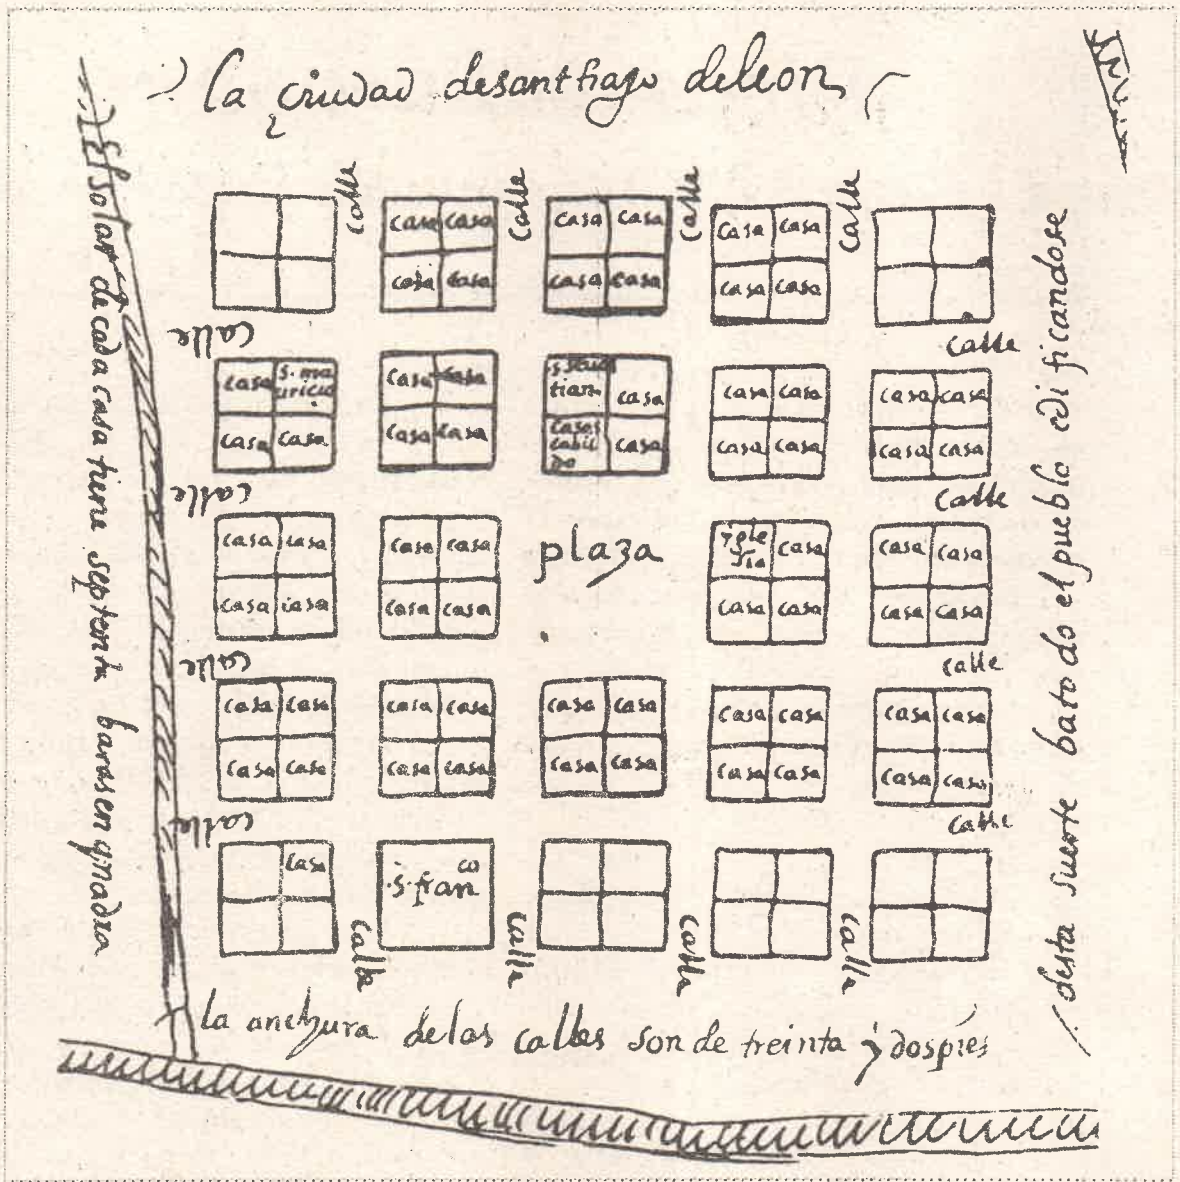 la ciudad desanthiago deleon
El solar de cada casa tiene septenta baras en quadra
desta suerte ba todo el pueblo edificandose
calle
calle
calle
calle
casa casa
casa casa
casa casa
casa casa
casa casa
casa casa
calle
calle
casa s.ma
uricio
casa casa
casa casa
casa casa
s. sebas
tian casa
casas
cabil
do casa
casa casa
casa casa
casa casa
casa casa
calle
calle
casa casa
casa casa
casa casa
casa casa
plaza
igle
sia casa
casa casa
casa casa
casa casa
calle
calle
casa casa
casa casa
casa casa
casa casa
casa casa
casa casa
casa casa
casa casa
casa casa
casa casa
calle
calle
casa
s. fran co
calle
calle
calle
calle
la anchura de las calles son de treinta y dos pies